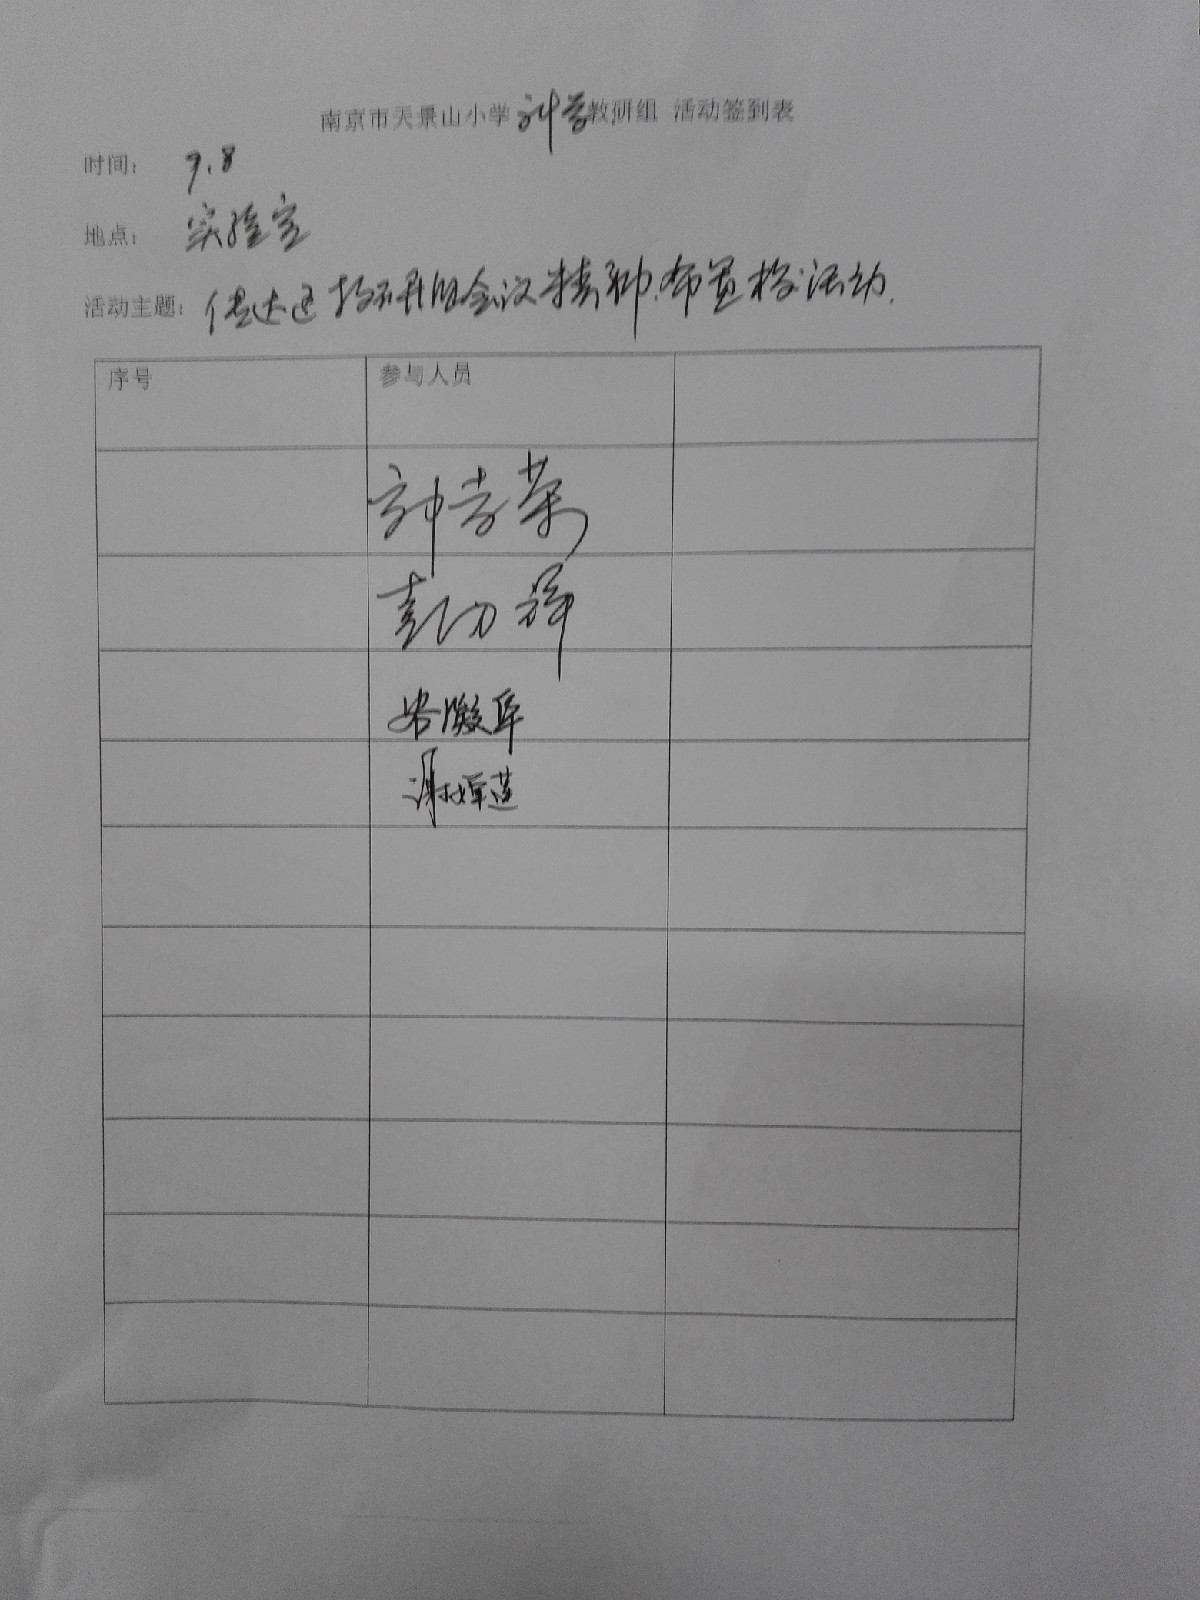 南京市天景山小学科学教研组 活动签到表
时间： 9.8
地点： 实验室
活动主题： 传达区教研组会议精神.布置校活动.
序号 参与人员
谢婷莲